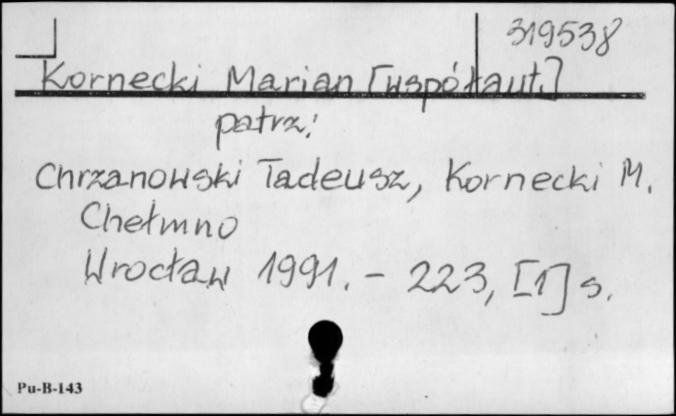 319538
Kornecki Marian [współaut.]
patrz:
Chrzanowski Tadeusz, Kornecki M.
Chełmno
Wrocław 1991. - 223, [1] s.
Pu-B-143